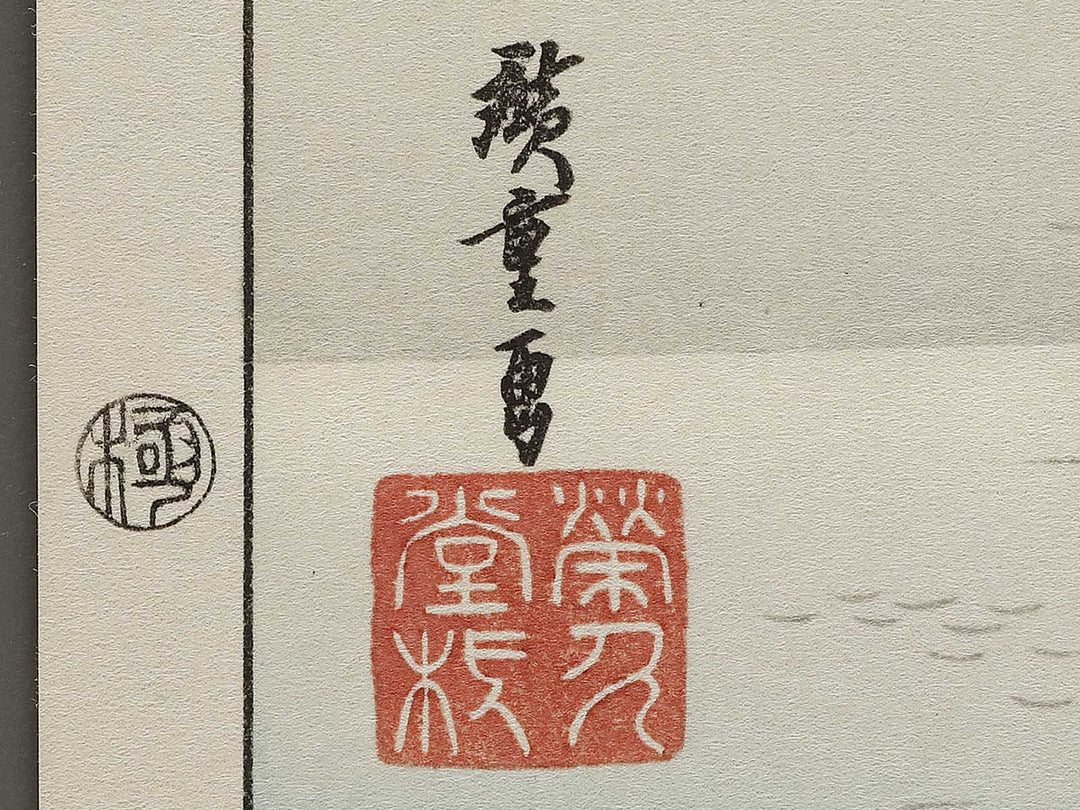 廣重画
榮久
堂板
極